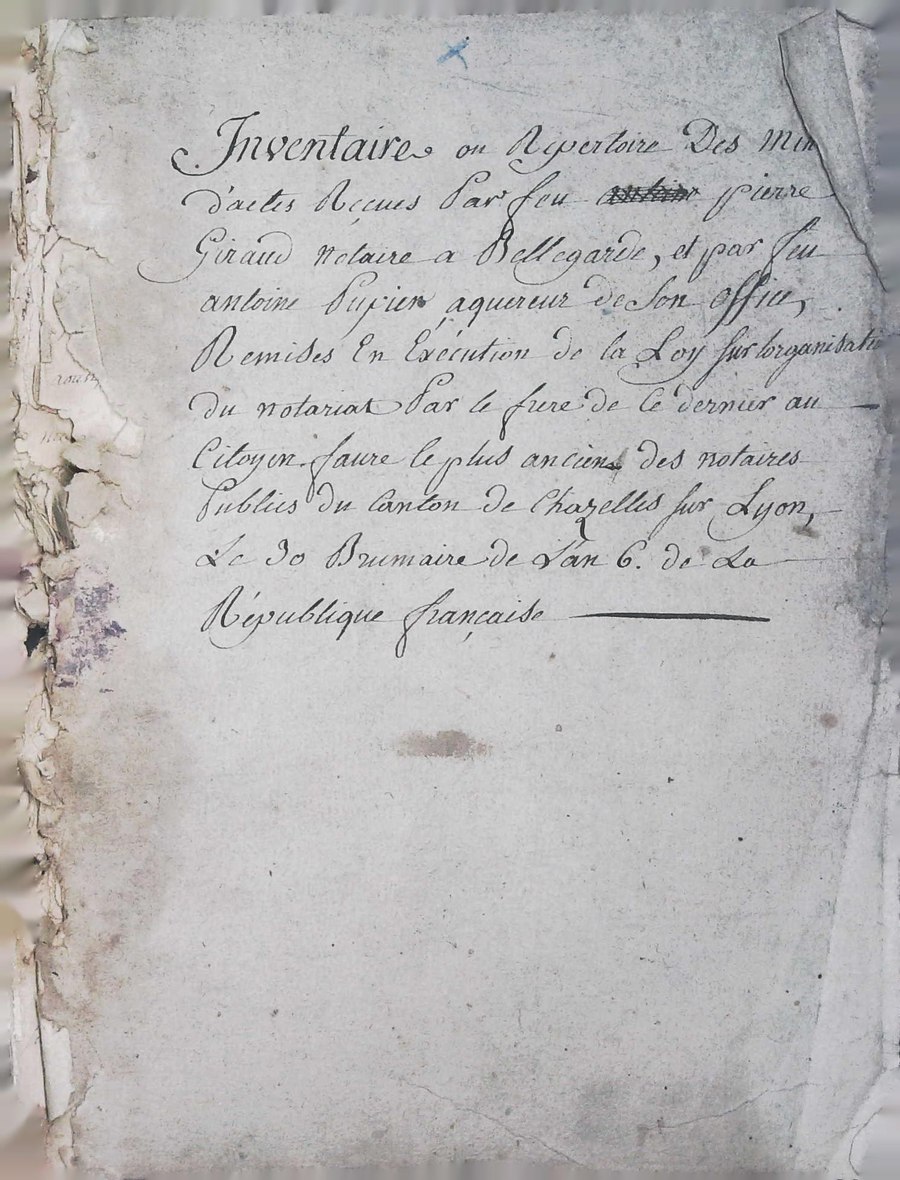 Inventaire ou Répertoire Des Min
d'actes Reçues Par feu pierre
Giraud notaire a Bellegarde, et par feu
antoine Pupier aquereur de Son office,
Remises En Exécution de la Loy sur lorganisati
du notariat Par le frere de ce dernier au
Citoyen faure le plus ancien des notaires
Publics du Canton de Chazelles sur Lyon,
Le 30 Brumaire de L'an 6. de La
République française